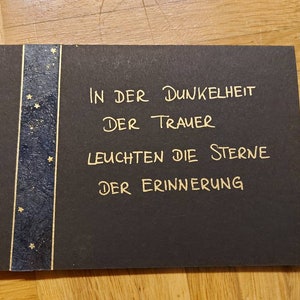 IN DER DUNKELHEIT
DER TRAUER
LEUCHTEN DIE STERNE
DER ERINNERUNG